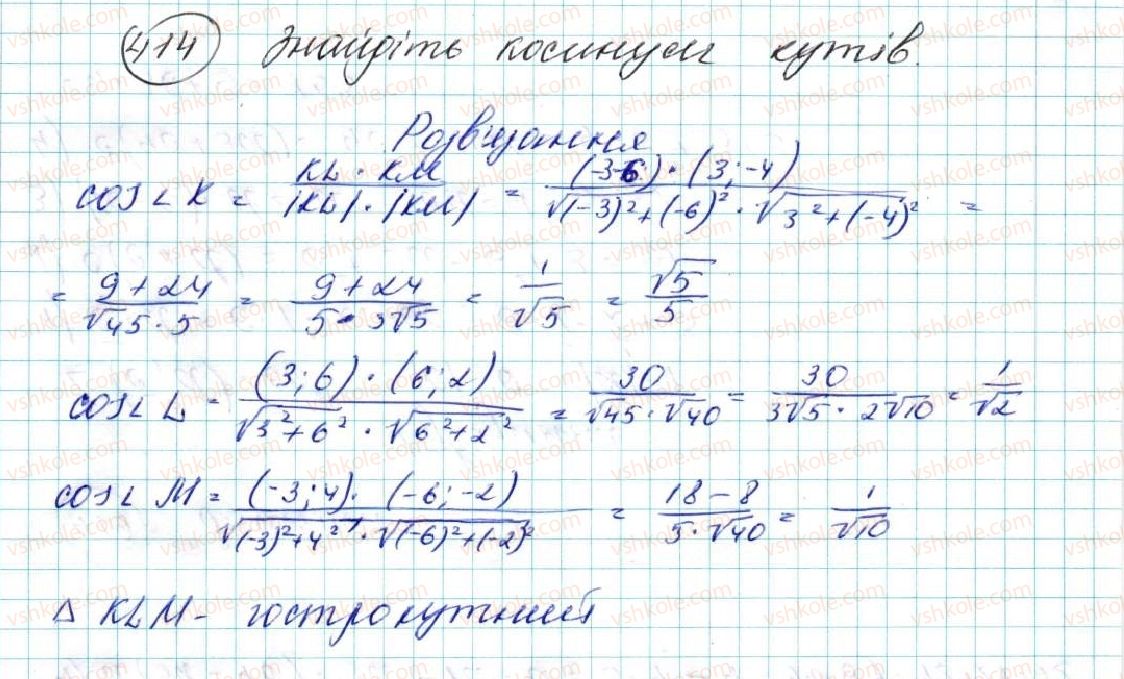 414 Знайдіть косинуси кутів.
Розв'язання
cos∠K = KL · KM / |KL| · |KM| = (-3-6) · (3; -4) / √(-3)²+(-6)² · √3²+(-4)² =
= 9+24 / √45 · 5 = 9+24 / 5 · 3√5 = 1/√5 = √5/5
cos∠L = (3; 6) · (6; 2) / √3²+6² · √6²+2² = 30 / √45 · √40 = 30 / 3√5 · 2√10 = 1/√2
cos∠M = (-3; 4) · (-6; -2) / √(-3)²+4² · √(-6)²+(-2)² = 18-8 / 5 · √40 = 1/√10
Δ KLM - гострокутний